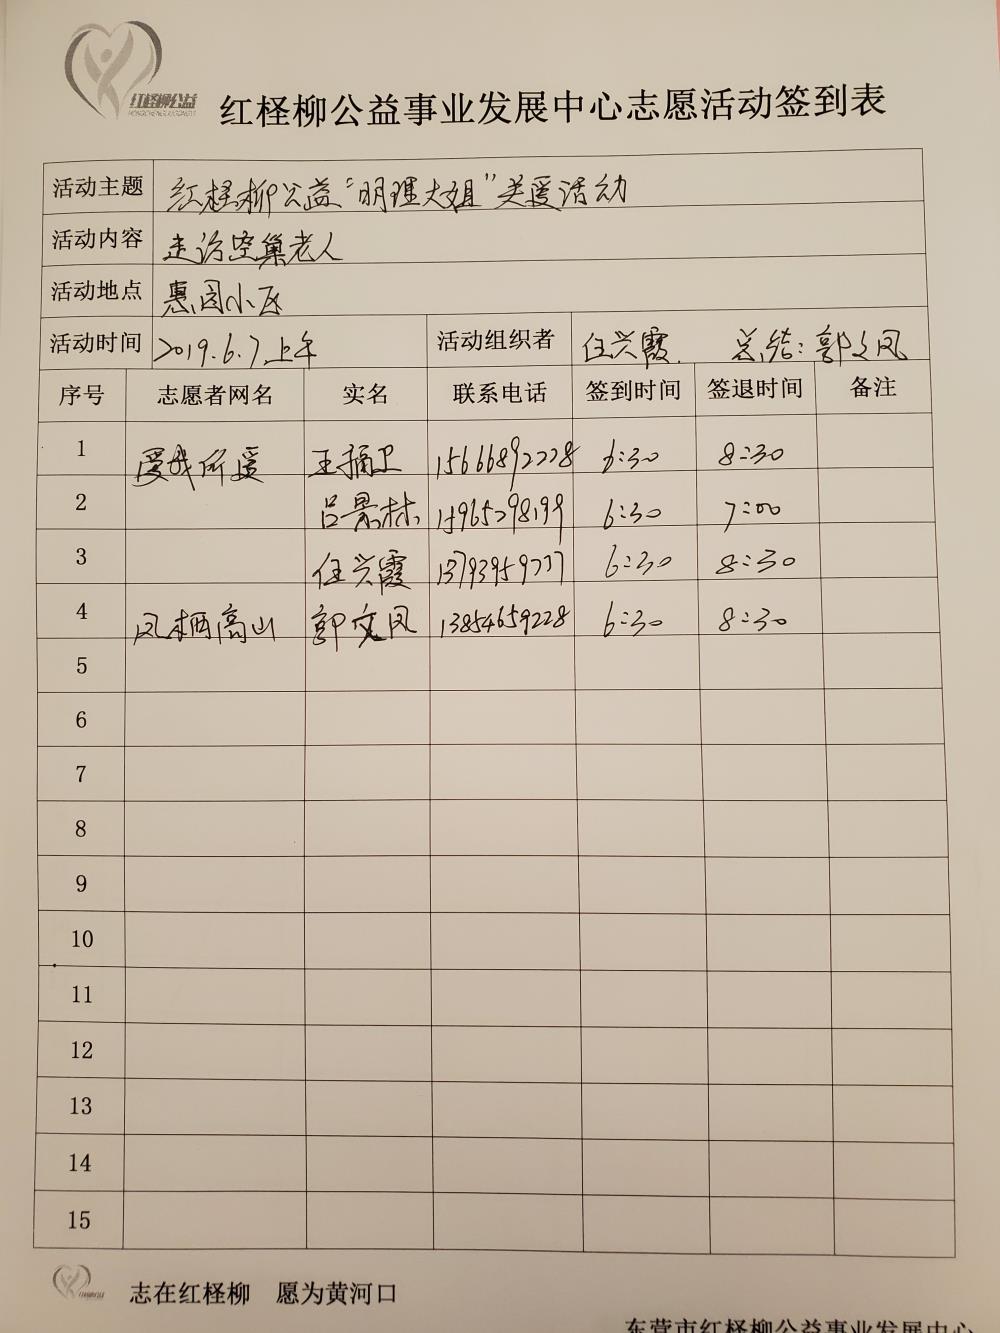 红柽柳公益
红柽柳公益事业发展中心志愿活动签到表
活动主题 红柽柳公益“明理大姐”关爱活动
活动内容 走访空巢老人
活动地点 惠园小区
活动时间 2019.6.7上午 活动组织者 任兴霞 总结:郭文凤
序号 志愿者网名 实名 联系电话 签到时间 签退时间 备注
1 爱我所爱 王 卫 15666892228 6:30 8:30
2 吕景林 15965298199 6:30 7:00
3 任兴霞 13793959777 6:30 8:30
4 凤栖高山 郭文凤 13854659228 6:30 8:30
5
6
7
8
9
10
11
12
13
14
15
志在红柽柳 愿为黄河口
东营市红柽柳公益事业发展中心